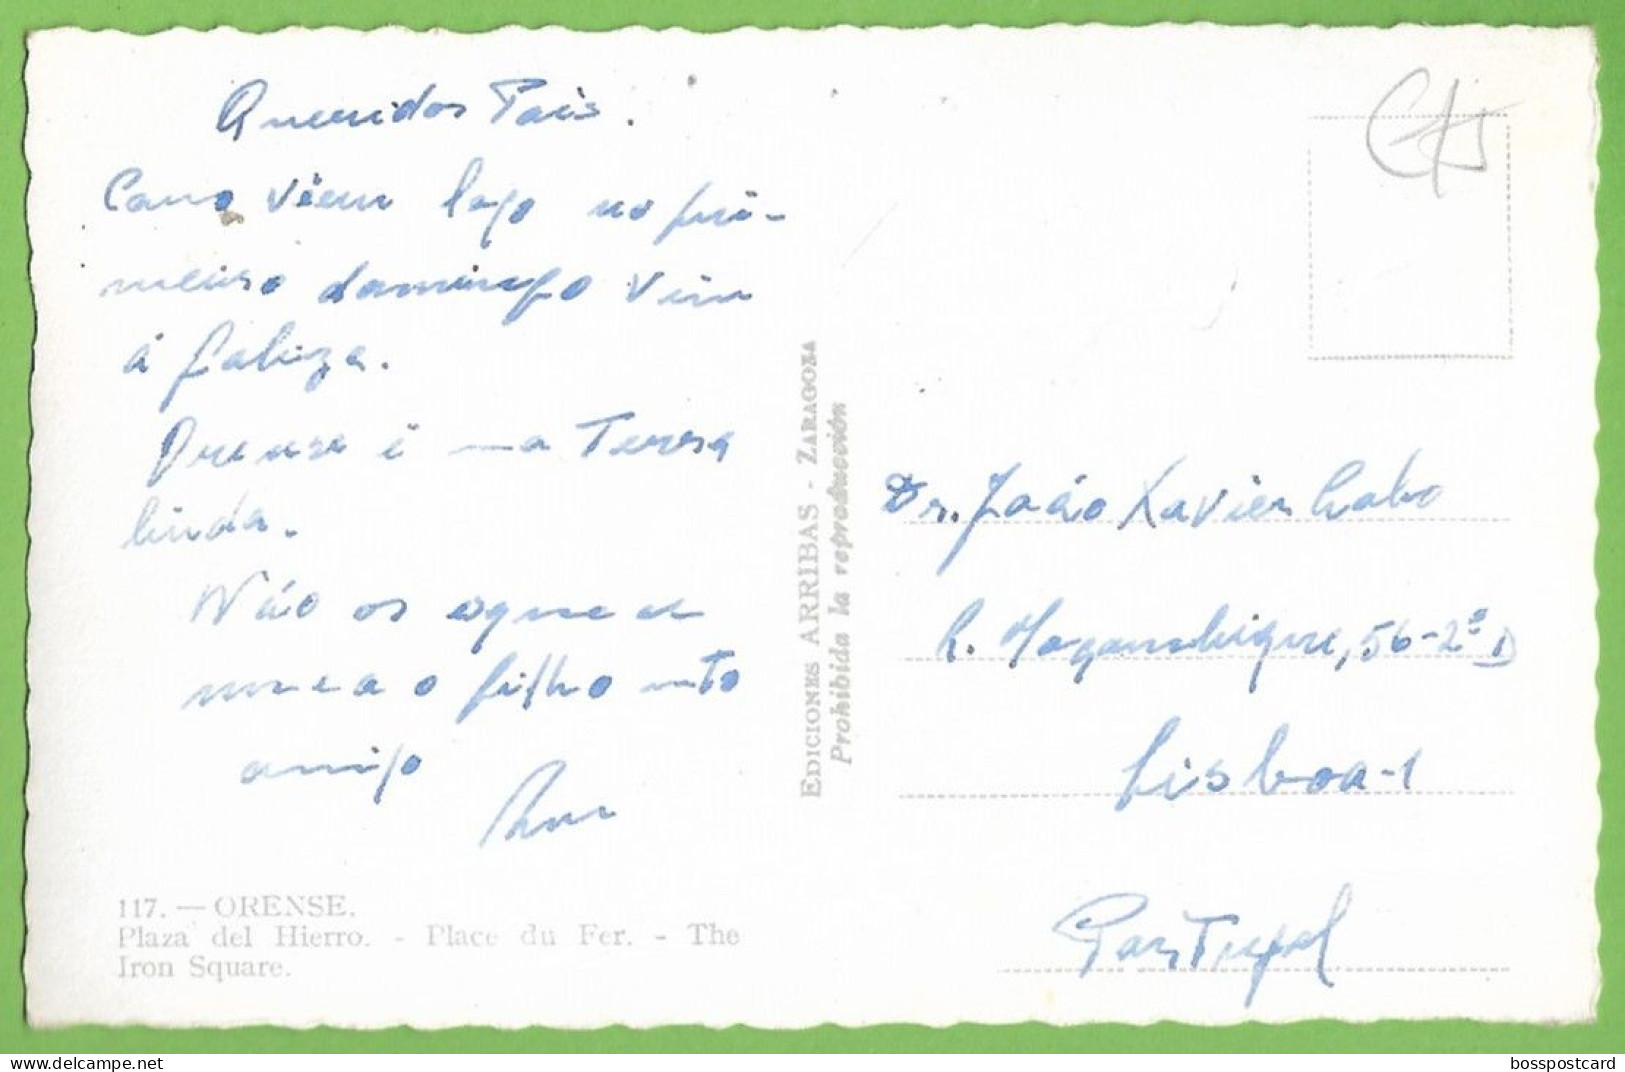 Queridos Pais.
Como vêem logo no pri-
meiro domingo vim
á Galiza.
Orense é uma Terra
linda.
Não os esquece
nunca o filho muito
amigo
117. — ORENSE.
Plaza del Hierro. - Place du Fer. - The
Iron Square.
EDICIONES ARRIBAS - ZARAGOZA
Prohibida la reproducción
Dr. João Xavier Lobo
R. Moçambique, 56-2º D
Lisboa-1
Portugal
bosspostcard